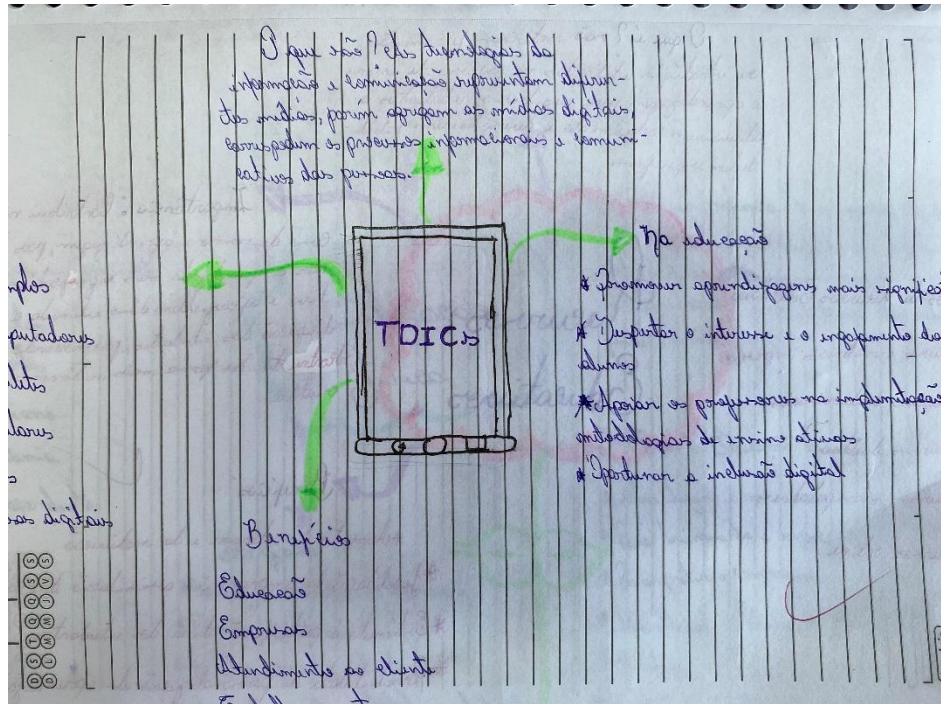 O que são? As tecnologias da
informação e comunicação representam diferen-
tes mídias, porém agregam as mídias digitais,
correspodem os processos informacionais e comuni-
cativos das pessoas.
TDICs
Na educação
* Promover aprendizagens mais signific
* Despertar o interesse e o engajamento dos
alunos
* Apoiar os professores na implementação
metodologias de ensino ativas
* Oportunar a inclusão digital
mplos
putadores
lets
lares
s
sas digitais
Benefícios
Educação
Empresas
Atendimento ao cliente